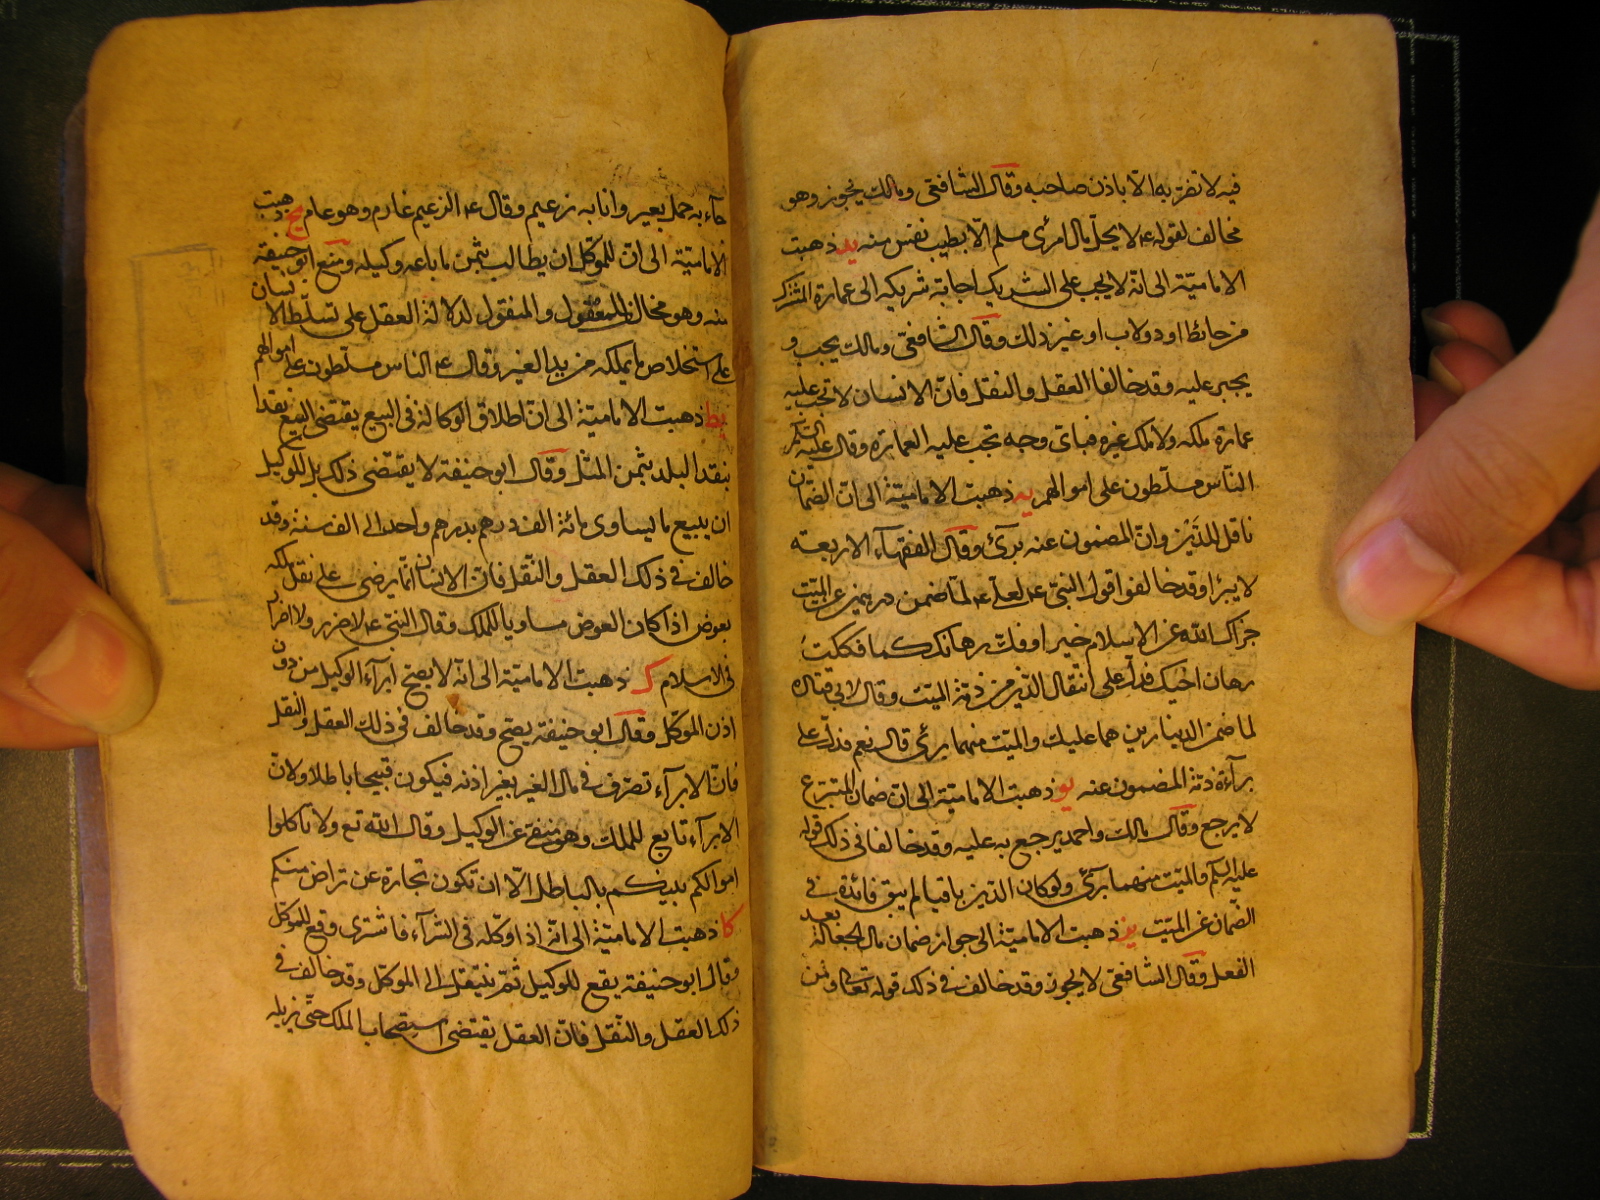 فيه لا تضر به الا باذن صاحبه وقال الشافعى ومالك يجوز وهو
مخالف لقوله عم لا يحل مال امرئ مسلم الا بطيب نفس منه يد ذهبت
الامامية الى انه لا يجب على الشريك اجابة شريكه الى عمارة المشترك
من حائط او دولاب او غير ذلك وقال الشافعى ومالك يجب و
يجبر عليه وقد خالفا العقل والنقل فان الانسان لا تجب عليه
عمارة ملكه ولا ملك غيره فباى وجه تجب عليه العمارة وقال عليه السلم
الناس مسلطون على اموالهم يه ذهبت الامامية الى ان الضمان
ناقل للدين وان المضمون عنه برئ وقال الفقهاء الاربعة
لا يبرا وقد خالفوا قول النبى عم لعلى عم لما ضمن درهمين عن الميت
جزاك الله عن الاسلام خيرا وفك رهانك كما فككت
رهان اخيك فدل على انتقال الدين من ذمة الميت وقال لابى قتاده
لما ضمن الدينارين هما عليك والميت منهما برئ قال نعم فدل على
براءة ذمة المضمون عنه يو ذهبت الامامية الى ان ضمان المتبرع
لا يرجع وقال مالك واحمد يرجع به عليه وقد خالفا فى ذلك قوله
عليه السلم والميت منهما برئ ولو كان الدين باقيا لم يبق فائدة فى
الضمان عن الميت يز ذهبت الامامية الى جواز ضمان مال الجعالة بعد
الفعل وقال الشافعى لا يجوز وقد خالف فى ذلك قوله تعالى ولمن
جاء به حمل بعير وانا به زعيم وقال عم الزعيم غارم وهو عام يح ذهبت
الامامية الى ان للموكل ان يطالب بثمن ما باعه وكيله ومنع ابو حنيفة
منه وهو مخالف للمعقول والمنقول لدلالة العقل على تسلط الانسان
على استخلاص ما يملكه من يد الغير وقال عم الناس مسلطون على اموالهم
يط ذهبت الامامية الى ان اطلاق الوكالة فى البيع يقتضى البيع نقدا
بنقد البلد بثمن المثل وقال ابو حنيفة لا يقتضى ذلك بل للوكيل
ان يبيع ما يساوى مائة الف درهم بدرهم واحد الى الف سنة وقد
خالف فى ذلك العقل والنقل فان الانسان انما يرضى على نقل ملكه
بعوض اذا كان العوض مساويا للملك وقال النبى عم لا ضرر ولا اضرار
فى الاسلام ك ذهبت الامامية الى انه لا يصح ابراء الوكيل من دون
اذن الموكل وقال ابو حنيفة يصح وقد خالف فى ذلك العقل والنقل
فان الابراء تصرف فى مال الغير بغير اذنه فيكون قبيحا باطلا ولان
الابراء تابع للملك وهو منفى عن الوكيل وقال الله تع ولا تاكلوا
اموالكم بينكم بالباطل الا ان تكون تجارة عن تراض منكم
كا ذهبت الامامية الى انه اذا وكله فى الشراء فاشترى وقع للموكل
وقال ابو حنيفة يقع للوكيل ثم ينتقل الى الموكل وقد خالف فى
ذلك العقل والنقل فان العقل يقتضى استصحاب الملك حتى يزيله